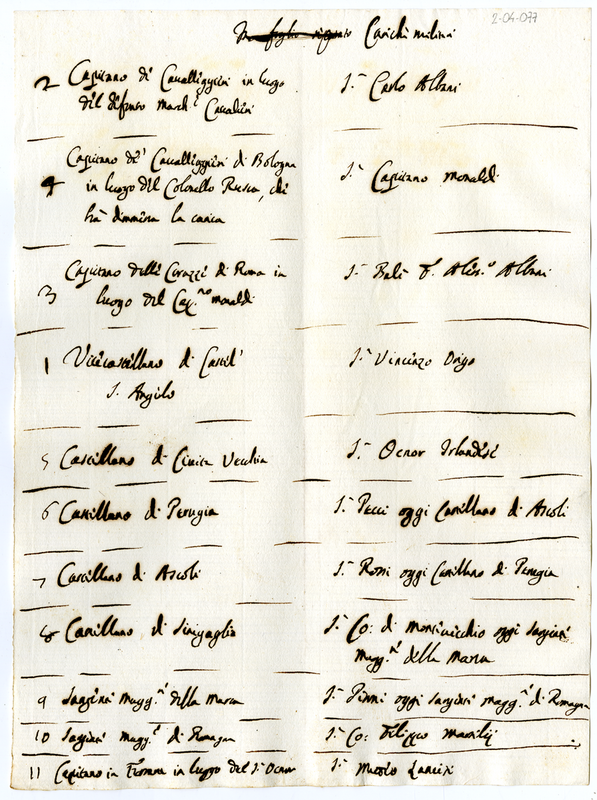 2-04-077
Carichi militari
2 Capitano di Cavalleggieri in luogo
del difunto March.e Cavalieri
S.r Carlo Albani
4 Capitano de' Cavalleggieri di Bologna
in luogo del Colonello Rusca, che
ha dimessa la carica
S.r Capitano Monaldi
3 Capitano delle Corazze di Roma in
luogo del Cap.no Monaldi
S.r Balì F. Aless.o Albani
1 Vicecastellano di Castel'
S. Angelo
S.r Vincenzo Origo
5 Castellano di Civita Vecchia
S.r Ocnor Irlandese
6 Castellano di Perugia
S.r Pecci oggi Castellano di Ascoli
7 Castellano di Ascoli
S.r Rossi oggi Castellano di Perugia
8 Castellano di Sinigaglia
S.r Co: di Montevecchio oggi Sargente
Magg.re della Marca
9 Sargente Magg.re della Marca
S.r Pinni oggi Sargente Magg.re di Romagna
10 Sargente Magg.re di Romagna
S.r Co: Filippo Marsilij
11 Capitano in Ferrara in luogo del S.r Ocnor
S.r Muzio Lancisi